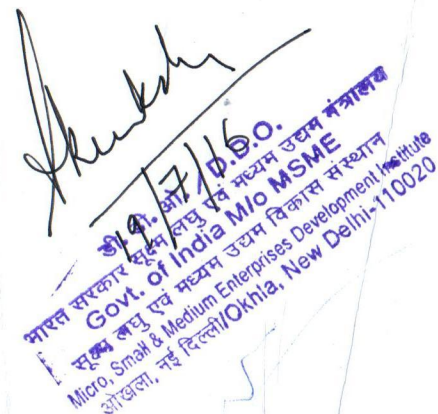 19/7/16
डी. डी. ओ./D.D.O.
भारत सरकार सूक्ष्म लघु एवं मध्यम उद्यम मंत्रालय
Govt. of India M/o MSME
सूक्ष्म लघु एवं मध्यम उद्यम विकास संस्थान
Micro, Small & Medium Enterprises Development Institute
ओखला, नई दिल्ली/Okhla, New Delhi-110020